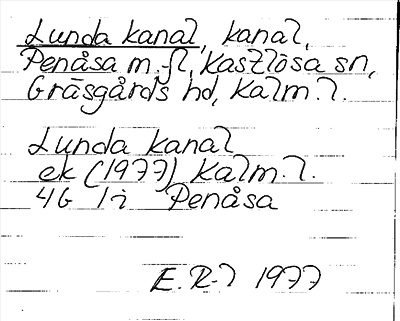 Lunda kanal, kanal,
Penåsa m.fl, Kastlösa sn,
Gräsgårds hd, Kalm.l.
Lunda kanal
ek (1977) Kalm.l.
4G 1i Penåsa
E.R-l 1977